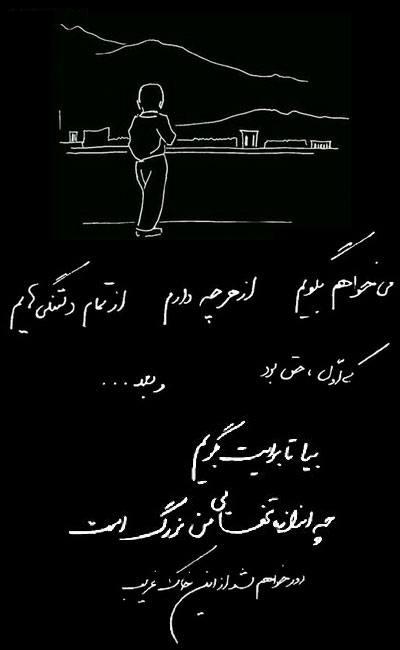 می خواهم بگویم از هر چه دارم از تمام دلتنگی هایم
اوّل ، حق بود و بعد ...
بیا تا برایت بگویم
چه اندازه تنهایی من بزرگ است
دور خواهم شد از این خاک غریب